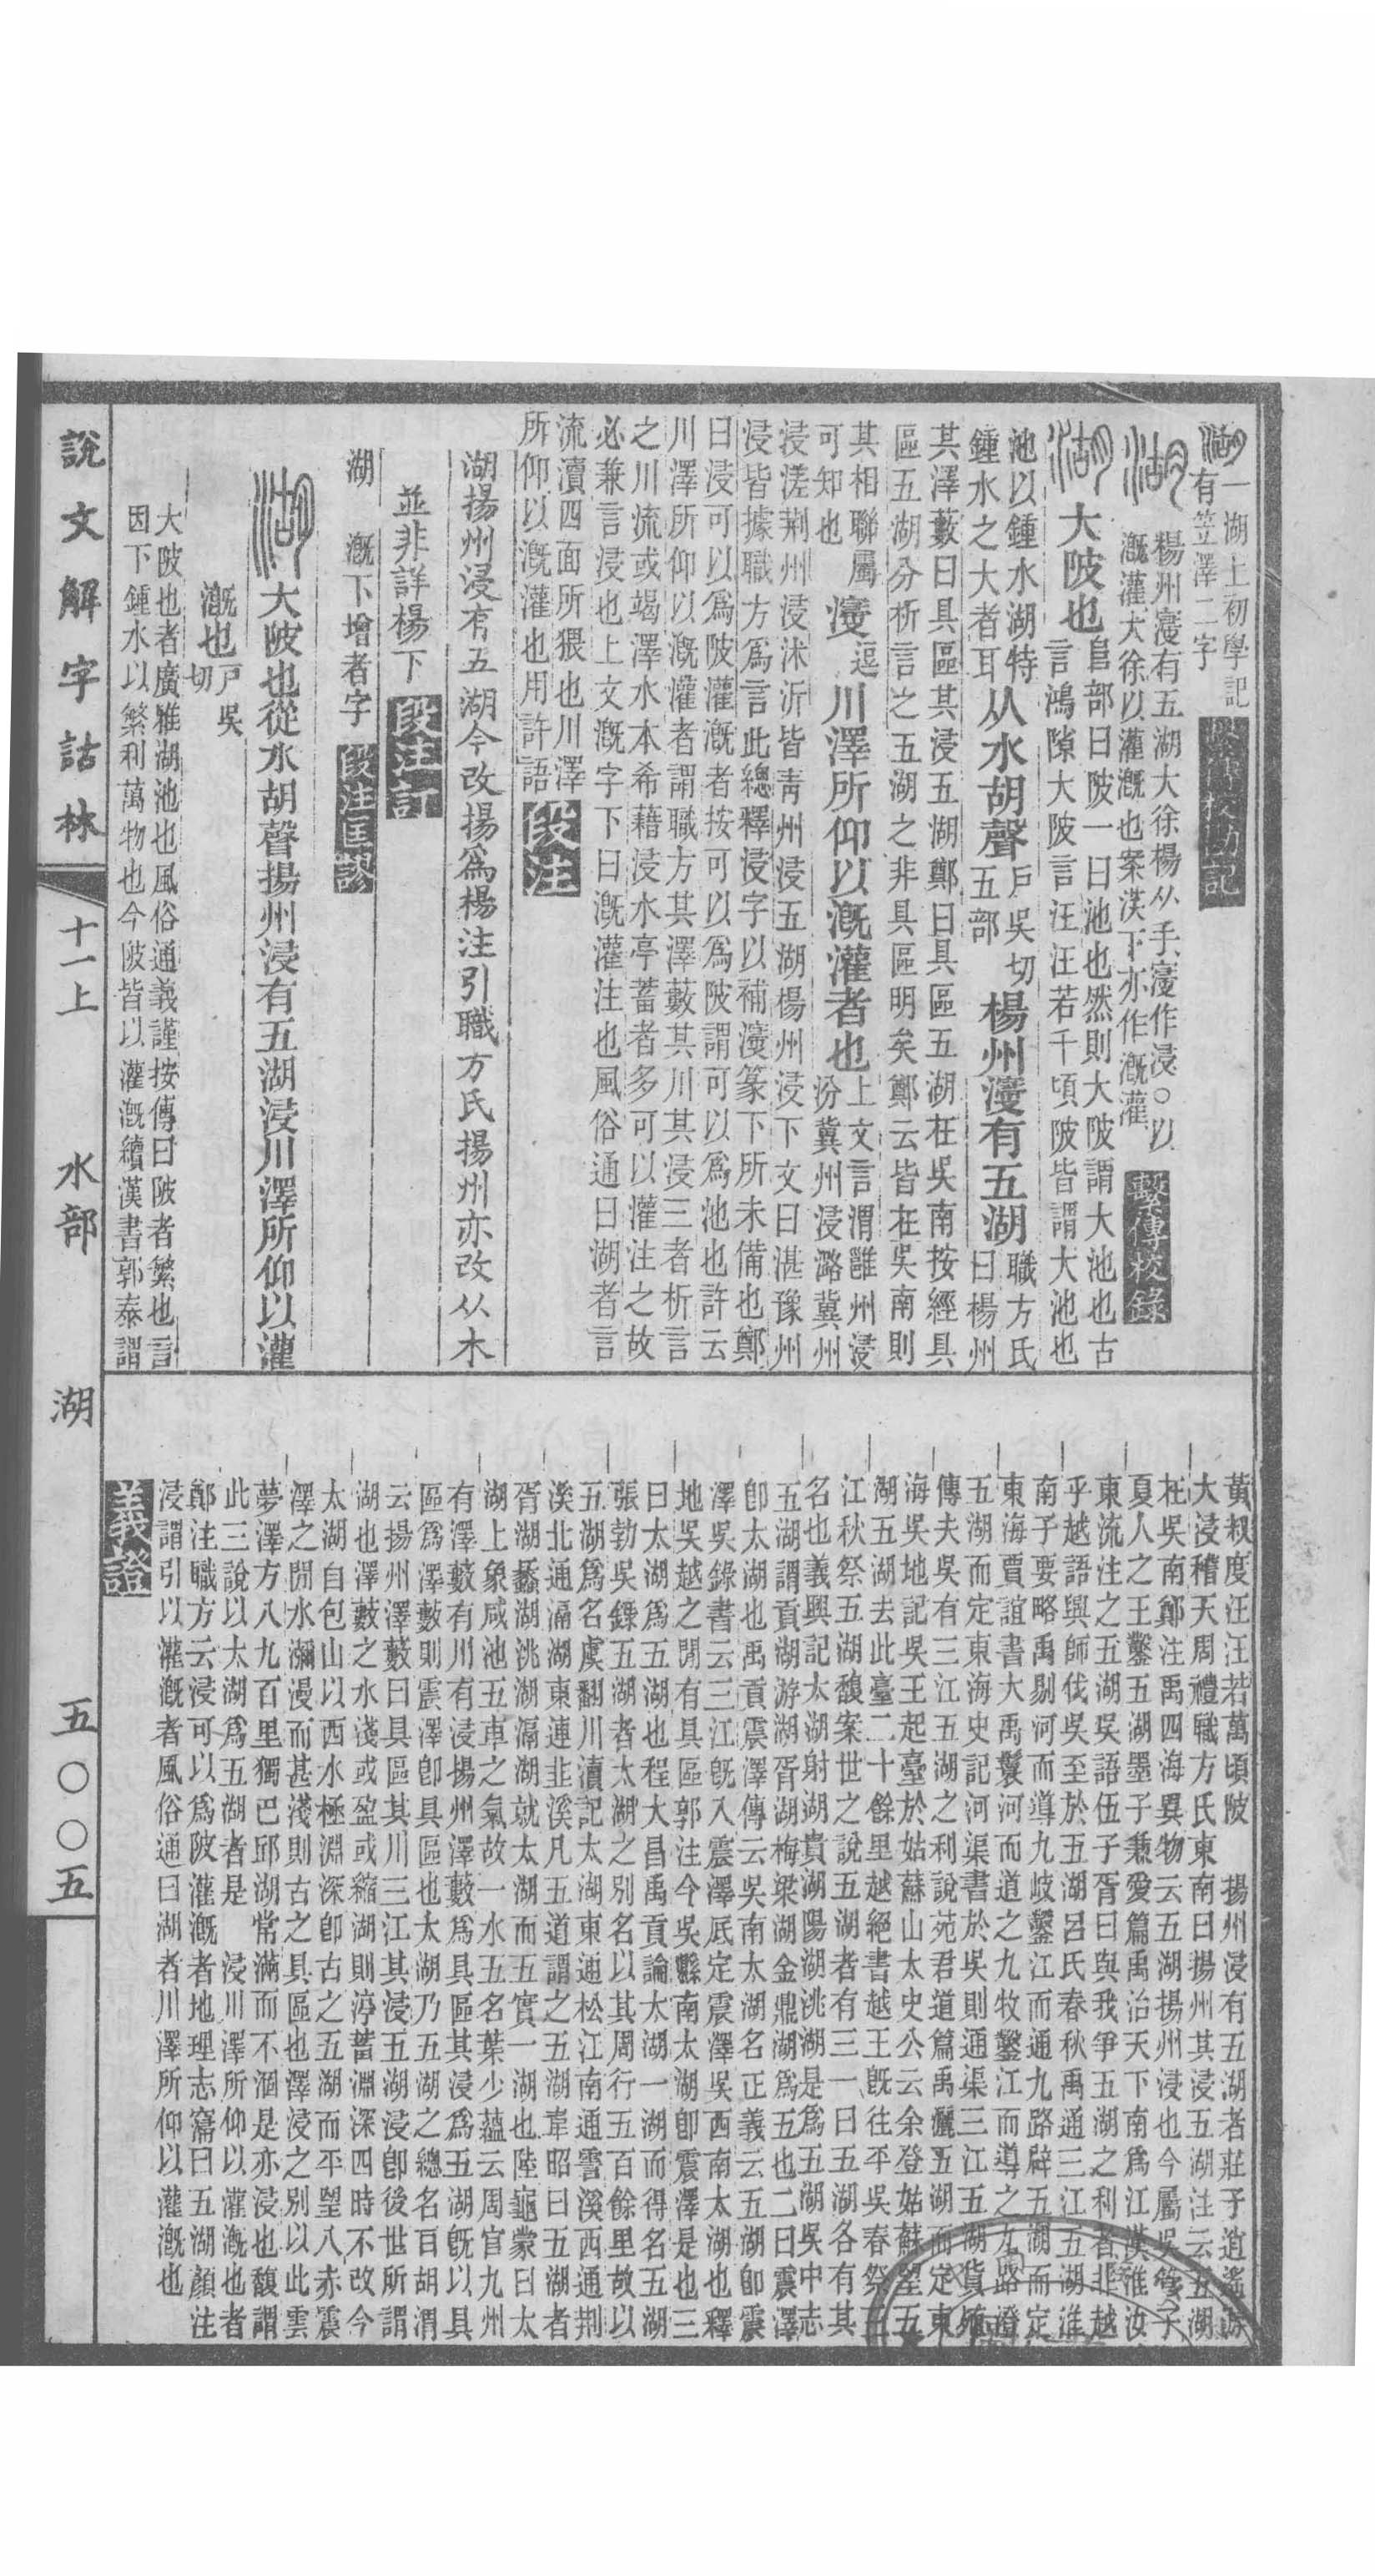 一湖上初學記
有笠澤二字
楊州濅有五湖大徐楊从手濅作浸○以
漑灌大徐以灌漑也案漢下亦作漑灌
繫傳校錄
湖 大陂也
𨸏部曰陂一曰池也然則大陂謂大池也古
言鴻隙大陂言汪汪若千頃陂皆謂大池也
池以鍾水湖特
鍾水之大者耳
从水胡聲
戶吳切
五部
楊州濅有五湖
職方氏
曰楊州
其澤藪曰具區其浸五湖鄭曰具區五湖在吳南按經具
區五湖分析言之五湖之非具區明矣鄭云皆在吳南則
其相聯屬
可知也
濅
逗
川澤所仰以漑灌者也
上文言渭雝州浸
汾冀州浸潞冀州
浸溠荆州浸沭沂皆靑州浸五湖楊州浸下文曰湛豫州
浸皆據職方爲言此總釋浸字以補濅篆下所未備也鄭
曰浸可以爲陂灌漑者按可以爲陂謂可以爲池也許云
川澤所仰以漑灌者謂職方其澤藪其川其浸三者析言
之川流或竭澤水本希藉浸水亭蓄者多可以灌注之故
必兼言浸也上文漑字下曰漑灌注也風俗通曰湖者言
流瀆四面所猥也川澤
所仰以漑灌也用許語
段注
湖揚州浸有五湖今改揚爲楊注引職方氏揚州亦改从木
並非詳楊下
段注訂
湖 漑下增者字
段注匡謬
湖 大陂也從水胡聲揚州浸有五湖浸川澤所仰以灌
漑也
戶吳
切
大陂也者廣雅湖池也風俗通義謹按傳曰陂者繁也言
因下鍾水以繁利萬物也今陂皆以灌漑續漢書郭泰謂
黃叔度汪汪若萬頃陂 揚州浸有五湖者莊子逍遙游
大浸稽天周禮職方氏東南曰揚州其浸五湖注云五湖
在吳南鄭注禹四海異物云五湖揚州浸也今屬吳管子
夏人之王鑿五湖墨子兼愛篇禹治天下南爲江漢淮汝
東流注之五湖吳語伍子胥曰與我爭五湖之利者非越
乎越語與師伐吳至於五湖呂氏春秋禹通三江五湖淮
南子要略禹剔河而導九岐鑿江而通九路辟五湖而定
東海賈誼書大禹鬟河而道之九牧鑿江而導之九路澄
五湖而定東海史記河渠書於吳則通渠三江五湖貨殖
傳夫吳有三江五湖之利說苑君道篇禹灑五湖而定東
海吳地記吳王起臺於姑蘇山太史公云余登姑蘇望五
湖五湖去此臺二十餘里越絕書越王旣往平吳春祭三
江秋祭五湖馥案世之說五湖者有三一曰五湖各有其
名也義興記太湖射湖貴湖陽湖洮湖是爲五湖吳中志
五湖謂貢湖游湖胥湖梅梁湖金鼎湖爲五也二曰震澤
卽太湖也禹貢震澤傳云吳南太湖名正義云五湖卽震
澤吳錄書云三江旣入震澤厎定震澤吳西南太湖也釋
地吳越之閒有具區郭注今吳縣南太湖卽震澤是也三
曰太湖爲五湖也程大昌禹貢論太湖一湖而得名五湖
張勃吳錄五湖者太湖之別名以其周行五百餘里故以
五湖爲名虞翻川瀆記太湖東通松江南通霅溪西通荆
溪北通滆湖東連韭溪凡五道謂之五湖韋昭曰五湖者
胥湖蠡湖洮湖滆湖就太湖而五實一湖也陸龜蒙曰太
湖上象咸池五車之氣故一水五名葉少蘊云周官九州
有澤藪有川有浸揚州澤藪爲具區其浸爲五湖旣以具
區爲澤藪則震澤卽具區也太湖乃五湖之總名百胡渭
云揚州澤藪曰具區其川三江其浸五湖浸卽後世所謂
湖也澤藪之水淺或盈或縮湖則渟蓄淵深四時不改今
太湖自包山以西水極淵深卽古之五湖而平望八赤震
澤之閒水瀰漫而甚淺則古之具區也澤浸之別以此雲
夢澤方八九百里獨巴邱湖常滿而不涸是亦浸也馥謂
此三說以太湖爲五湖者是 浸川澤所仰以灌漑也者
鄭注職方云浸可以爲陂灌漑者地理志𡩋曰五湖顏注
浸謂引以灌漑者風俗通曰湖者川澤所仰以灌漑也
義證
說文解字詁林
十一上
水部
湖
五〇〇五